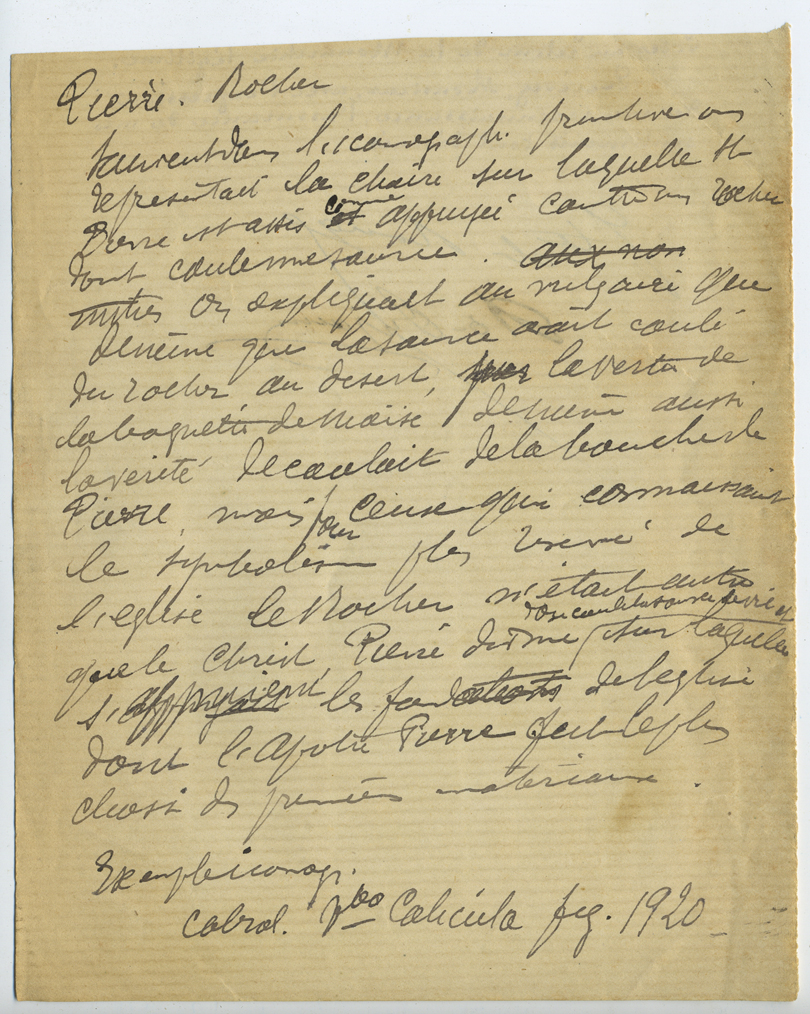 Pierre. Rocher
Souvent dans l'iconograph. primitive on
représentait la chaire sur laquelle St
Pierre est assis comme et appuyée contre un rocher
dont coule une source. aux non
initiés on expliquait au vulgaire que
de même que la source avait coulé
du rocher au désert, par la vertu de
la baguette de Moïse, de même aussi
la vérité découlait de la bouche de
Pierre, mais pour ceux qui connaissaient
le symbolisme plus de
l'eglise le Rocher n'était autre
que le Christ, Pierre divine d'on coule la source sur laquelle
s'appuyaient les fondations de l'eglise
dont l'apotre Pierre fut le plus
choisi des premiers materiaux.
Exemple iconogr.
Cabrol. Vbo Calicula fig. 1920